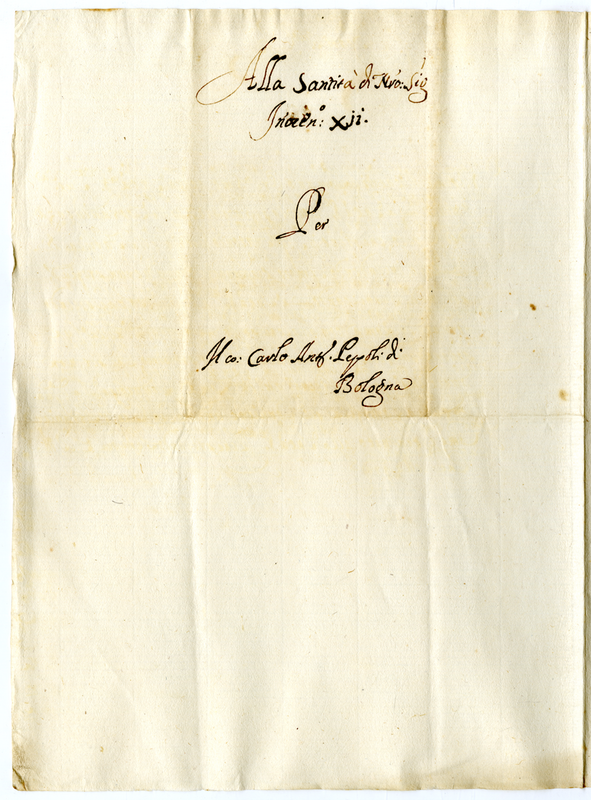 Alla Santità di Nro: Sig
Innocen:o Xii.
Per
Il co: Carlo Ant:o Pepoli di
Bologna